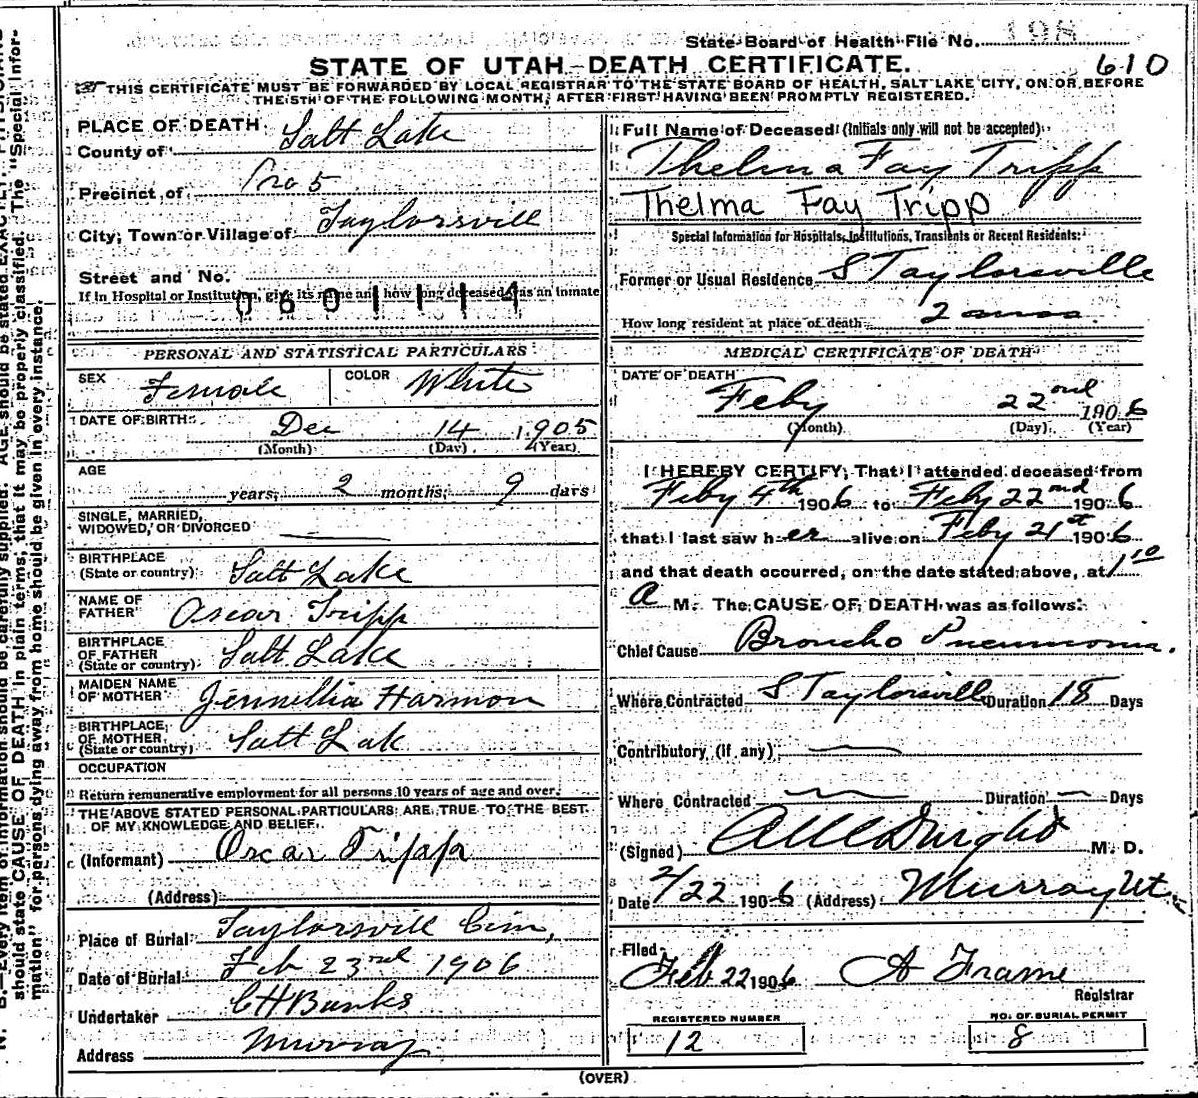 State Board of Health File No. 198
610
STATE OF UTAH—DEATH CERTIFICATE.
THIS CERTIFICATE MUST BE FORWARDED BY LOCAL REGISTRAR TO THE STATE BOARD OF HEALTH, SALT LAKE CITY, ON OR BEFORE
THE 5TH OF THE FOLLOWING MONTH, AFTER FIRST HAVING BEEN PROMPTLY REGISTERED.
PLACE OF DEATH
County of Salt Lake
Precinct of No 5
City, Town or Village of Taylorsvill
Street and No.
If in Hospital or Institution, give its name and how long deceased was an inmate
0601114
PERSONAL AND STATISTICAL PARTICULARS
SEX Female COLOR White
DATE OF BIRTH Dec 14 1905
(Month) (Day) (Year)
AGE
years, 2 months, 9 days
SINGLE, MARRIED,
WIDOWED, OR DIVORCED
BIRTHPLACE
(State or country) Salt Lake
NAME OF
FATHER Oscar Tripp
BIRTHPLACE
OF FATHER
(State or country) Salt Lake
MAIDEN NAME
OF MOTHER Jennellia Harmon
BIRTHPLACE
OF MOTHER
(State or country) Salt Lak
OCCUPATION
Return remunerative employment for all persons 10 years of age and over.
THE ABOVE STATED PERSONAL PARTICULARS ARE TRUE TO THE BEST
OF MY KNOWLEDGE AND BELIEF.
(Informant) Oscar Tripp
(Address)
Place of Burial Taylorsvill Cem,
Date of Burial Feb 23rd 1906
Undertaker CH Banks
Address Murray
Full Name of Deceased (Initials only will not be accepted)
Thelma Fay Tripp
Thelma Fay Tripp
Special Information for Hospitals, Institutions, Transients or Recent Residents:
Former or Usual Residence S Taylorsville
How long resident at place of death 2 mos.
MEDICAL CERTIFICATE OF DEATH
DATE OF DEATH
Feby 22nd 1906
(Month) (Day) (Year)
I HEREBY CERTIFY, That I attended deceased from
Feby 4th 1906 to Feby 22nd 1906
that I last saw her alive on Feby 21st 1906
and that death occurred, on the date stated above, at 1 10
A M. The CAUSE OF DEATH was as follows:
Chief Cause Broncho Pneumonia.
Where Contracted S Taylorsvill Duration 18 Days
Contributory (if any)
Where Contracted Duration Days
(Signed) M. D.
Date 2/22 1906 (Address) Murray Ut.
Filed
Feb 22 1906 A Frame
Registrar
REGISTERED NUMBER
12
NO. OF BURIAL PERMIT
8
(OVER)
N. B.—Every item of information should be carefully supplied. AGE should be stated EXACTLY. PHYSICIANS
should state CAUSE OF DEATH in plain terms, that it may be properly classified. The "Special Infor-
mation" for persons dying away from home should be given in every instance.